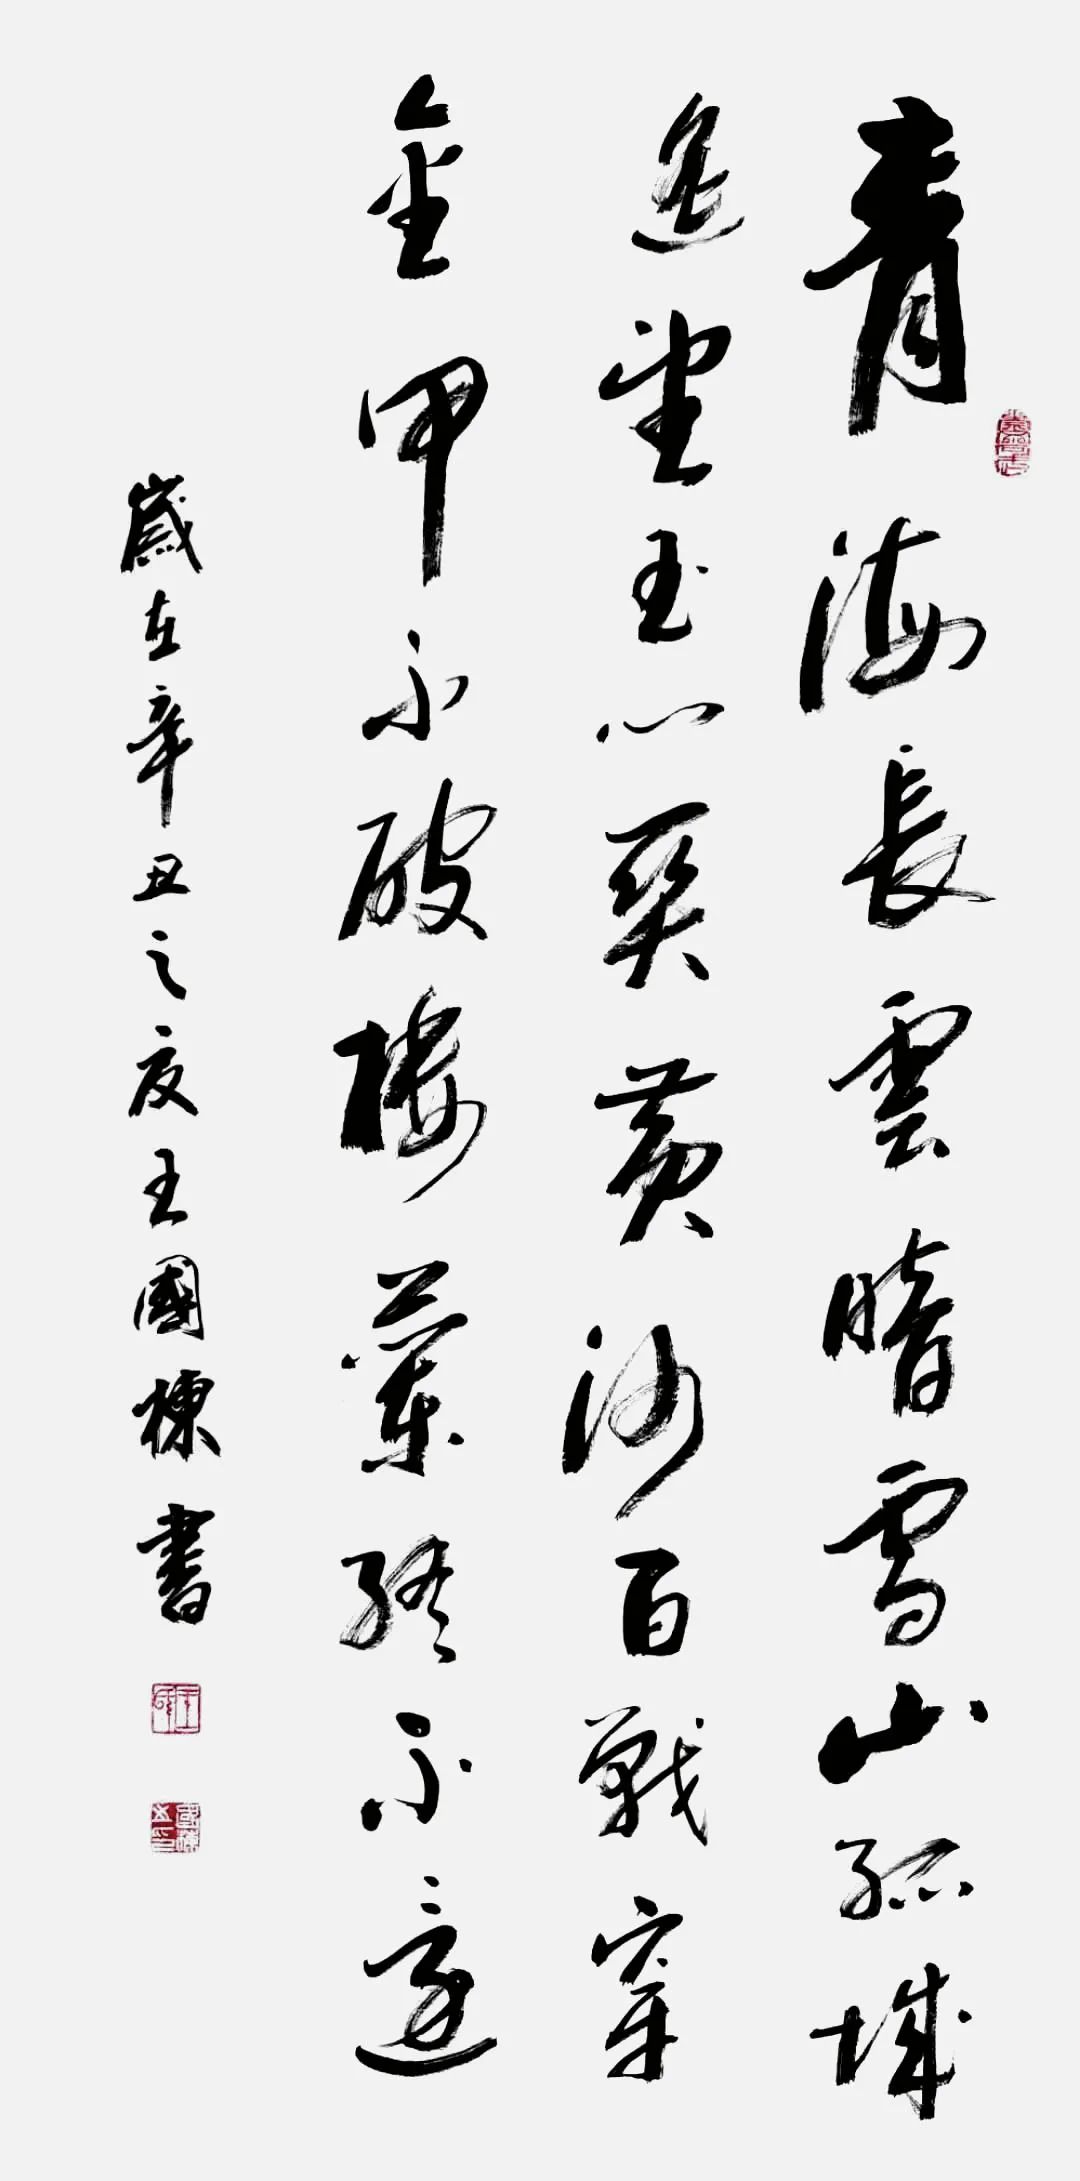 青海長雲暗雪山孤城
遥望玉門關黄沙百戰穿
金甲不破樓蘭終不還
歲在辛丑之夏王國棟書